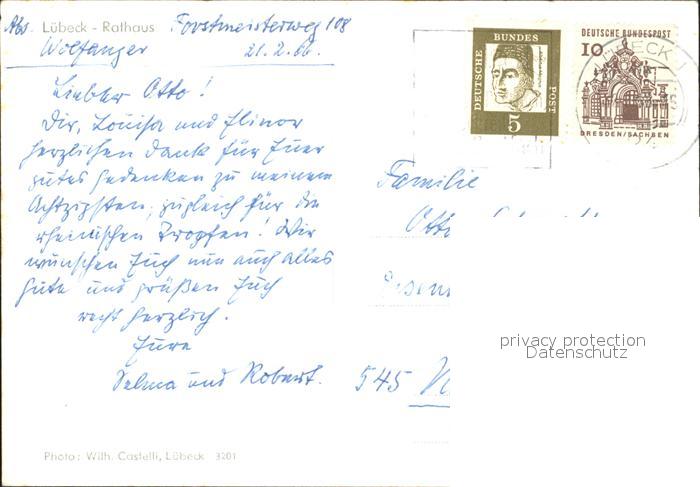 Abs. Lübeck - Rathaus Forstmeisterweg 108
Wolfanger 21.2.66.
Liebster Otto!
Dir, Louisa und Elinor
herzlichen Dank für Euer
gutes Gedenken zu meinem
Achtzigsten, zugleich für die
rheinischen Tropfen! Wir
wünschen Euch nun auch alles
Gute und grüßen Euch
recht herzlich.
Eure
Selma und Robert.
Photo: Wilh. Castelli, Lübeck 3201
DEUTSCHE BUNDES POST
5
DEUTSCHE BUNDESPOST
10
DRESDEN/SACHSEN
LÜBECK 1
Familie
Otto
545
privacy protection
Datenschutz